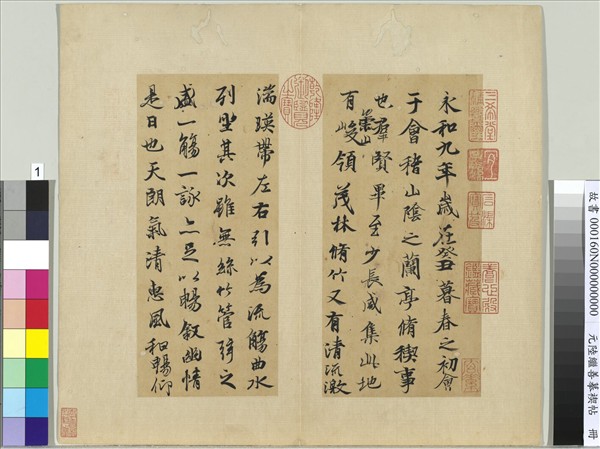 永和九年歲在癸丑暮春之初會
于會稽山陰之蘭亭脩禊事
也羣賢畢至少長咸集此地
有崇山峻領茂林脩竹又有清流激
湍暎帶左右引以為流觴曲水
列坐其次雖無絲竹管弦之
盛一觴一詠亦足以暢敘幽情
是日也天朗氣清惠風和暢仰
故書 000160N000000000 元陸繼善摹禊帖 冊
1